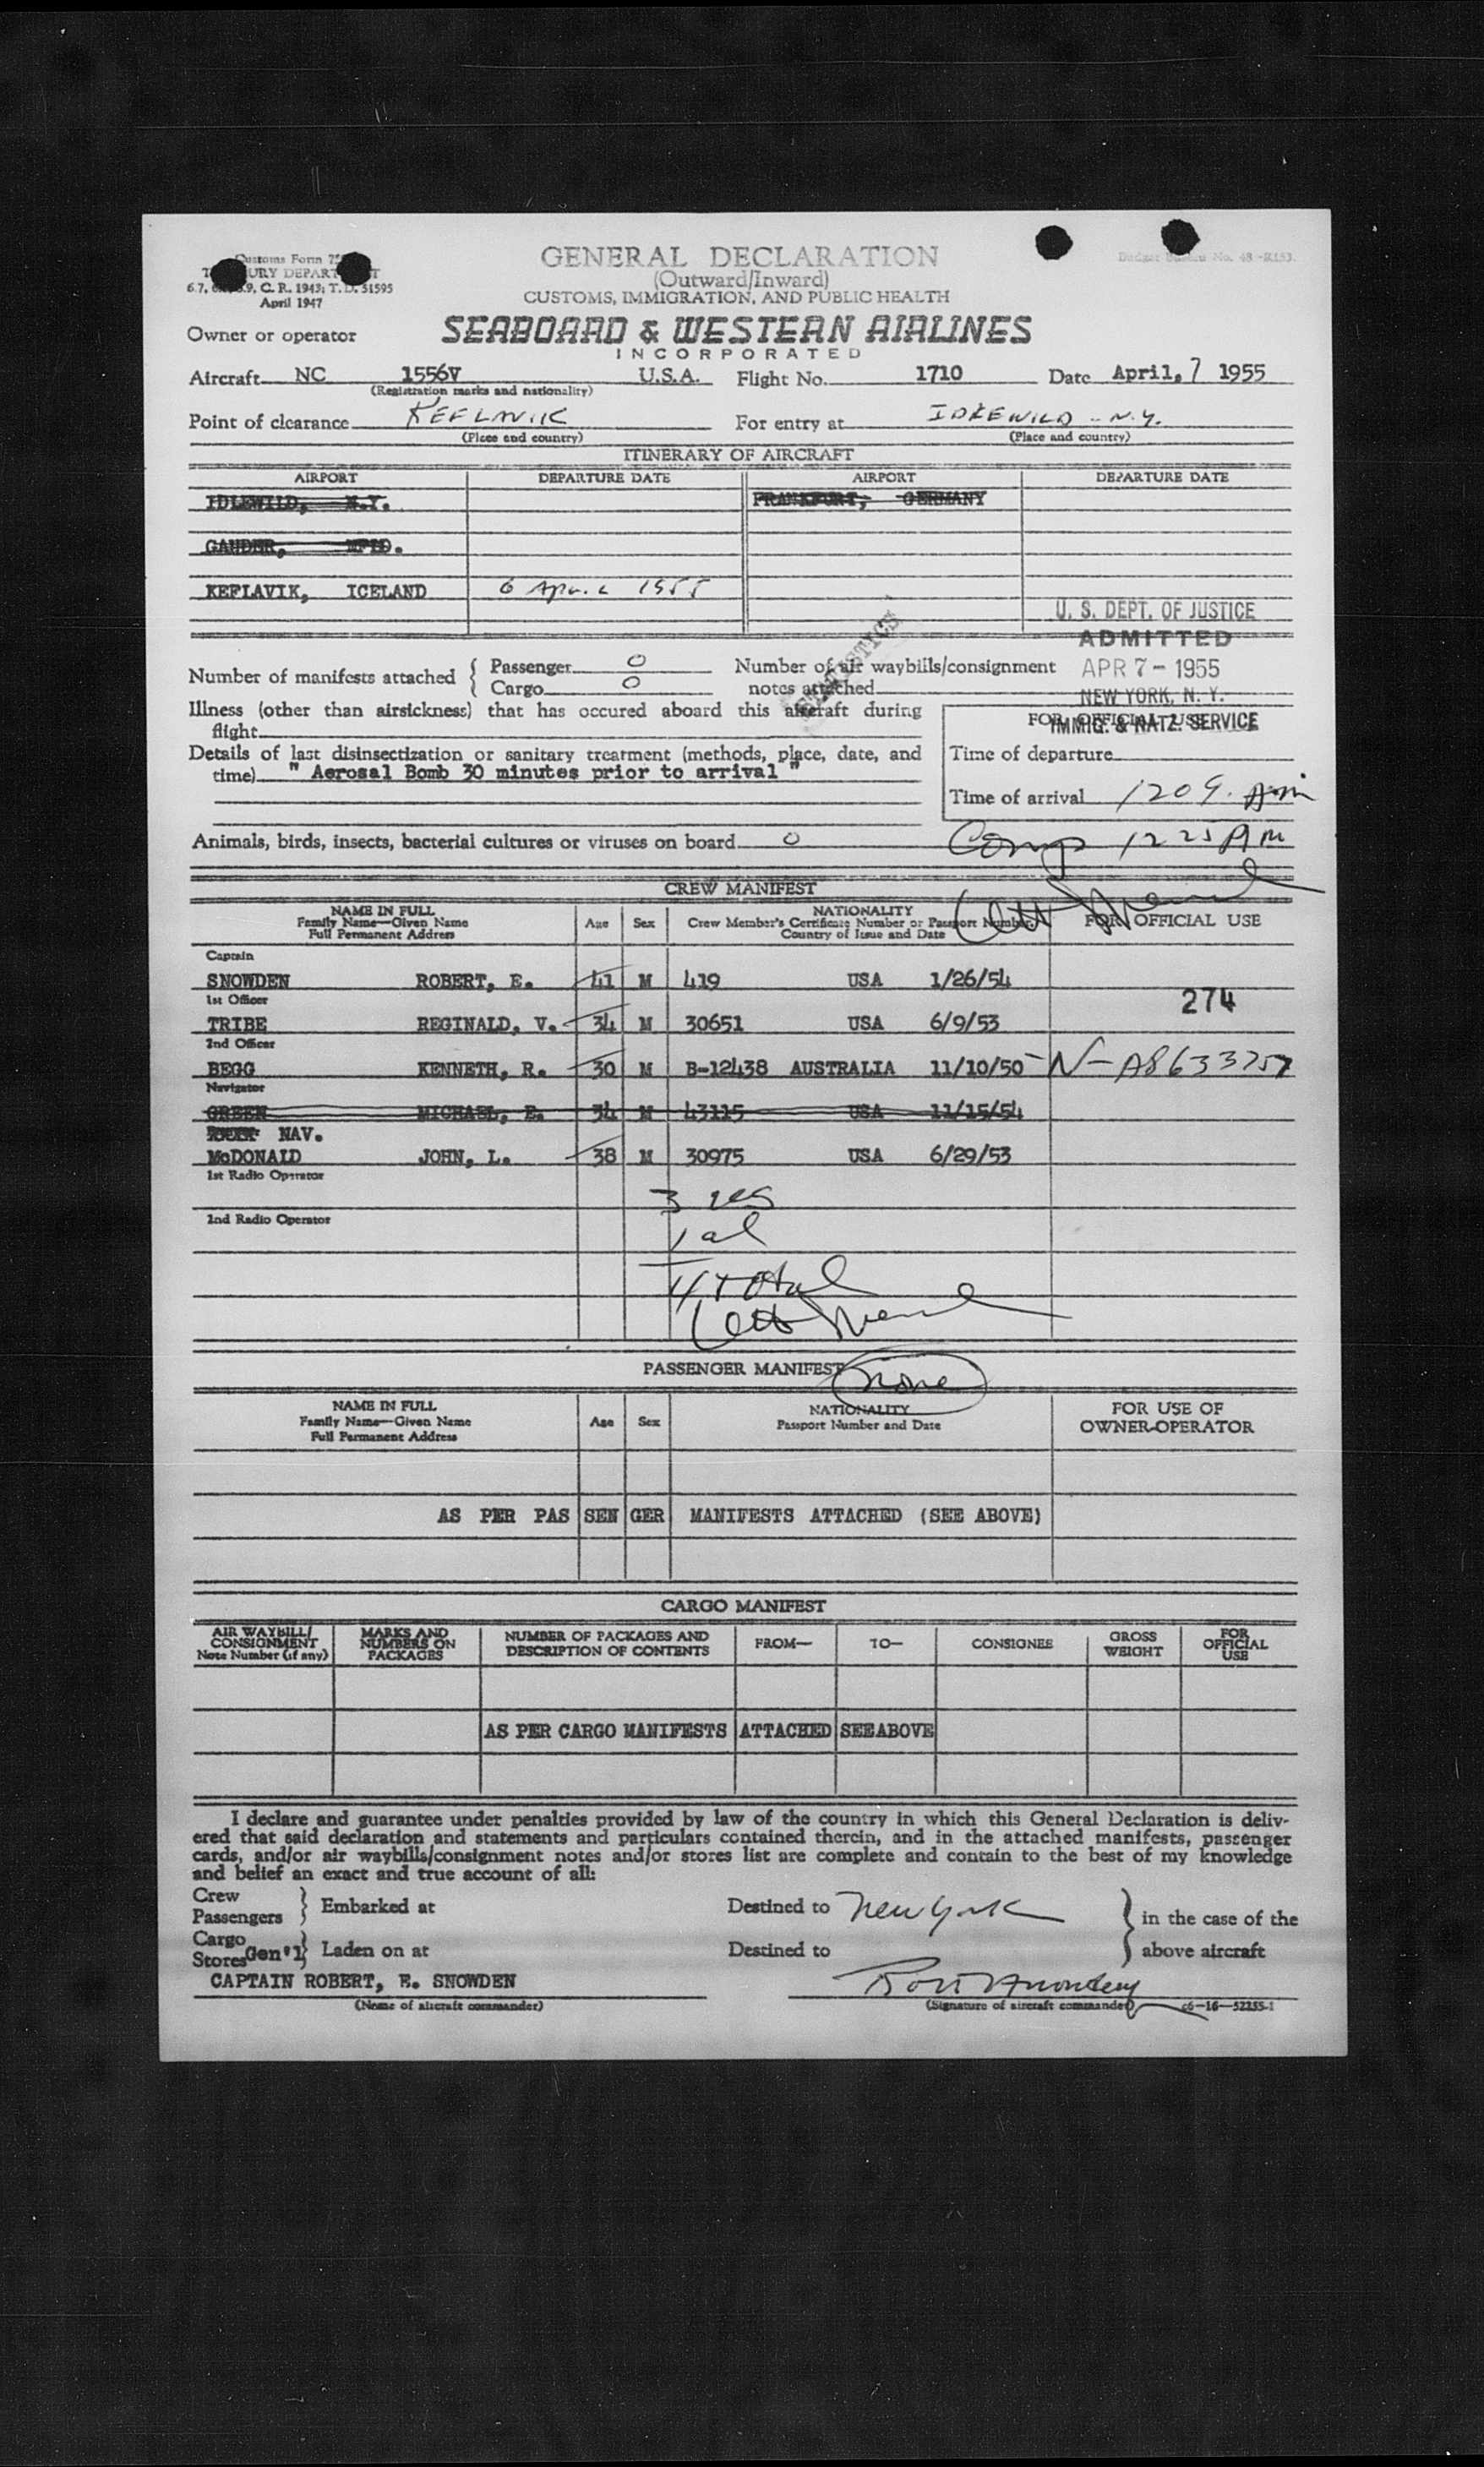 Customs Form
6.7, 6.9, C. R. 1943; T. D. 51595
April 1947
GENERAL DECLARATION
(Outward/Inward)
CUSTOMS, IMMIGRATION, AND PUBLIC HEALTH
Owner or operator SEABOARD & WESTERN AIRLINES
INCORPORATED
Aircraft NC 1556V U.S.A. Flight No. 1710 Date April, 7 1955
(Registration marks and nationality)
Point of clearance KEFLAVIK For entry at IDLEWILD - N.Y.
(Place and country) (Place and country)
ITINERARY OF AIRCRAFT
AIRPORT DEPARTURE DATE AIRPORT DEPARTURE DATE
IDLEWILD, N.Y. FRANKFURT, GERMANY
GANDER, NFLD.
KEFLAVIK, ICELAND 6 April 1955
U. S. DEPT. OF JUSTICE
ADMITTED
APR 7 - 1955
NEW YORK, N. Y.
IMMIG. & NATZ. SERVICE
STATISTICS
Number of manifests attached { Passenger 0
Cargo 0
Number of air waybills/consignment
notes attached
Illness (other than airsickness) that has occured aboard this aircraft during
flight
Details of last disinsectization or sanitary treatment (methods, place, date, and
time) " Aerosal Bomb 30 minutes prior to arrival "
FOR OFFICIAL USE
Time of departure
Time of arrival 1209 Am
Animals, birds, insects, bacterial cultures or viruses on board 0
Comp 1225 AM
CREW MANIFEST
NAME IN FULL
Family Name—Given Name
Full Permanent Address
Age Sex
NATIONALITY
Crew Member's Certificate Number or Passport Number,
Country of Issue and Date
FOR OFFICIAL USE
Captain
SNOWDEN ROBERT, E. 41 M 419 USA 1/26/54
274
1st Officer
TRIBE REGINALD, V. 34 M 30651 USA 6/9/53
2nd Officer
BEGG KENNETH, R. 30 M B-12438 AUSTRALIA 11/10/50 N-A8633257
Navigator
GREEN MICHAEL, E. 34 M 43115 USA 11/15/54
NAV.
McDONALD JOHN, L. 38 M 30975 USA 6/29/53
1st Radio Operator
3 
2nd Radio Operator
1 al
4 total
PASSENGER MANIFEST none
NAME IN FULL
Family Name—Given Name
Full Permanent Address
Age Sex
NATIONALITY
Passport Number and Date
FOR USE OF
OWNER-OPERATOR
AS PER PASSENGER MANIFESTS ATTACHED (SEE ABOVE)
CARGO MANIFEST
AIR WAYBILL/
CONSIGNMENT
Note Number (if any)
MARKS AND
NUMBERS ON
PACKAGES
NUMBER OF PACKAGES AND
DESCRIPTION OF CONTENTS
FROM— TO— CONSIGNEE
GROSS
WEIGHT
FOR
OFFICIAL
USE
AS PER CARGO MANIFESTS ATTACHED SEE ABOVE
I declare and guarantee under penalties provided by law of the country in which this General Declaration is deliv-
ered that said declaration and statements and particulars contained therein, and in the attached manifests, passenger
cards, and/or air waybills/consignment notes and/or stores list are complete and contain to the best of my knowledge
and belief an exact and true account of all:
Crew
Passengers } Embarked at Destined to New York } in the case of the
Cargo
Stores Gen'l } Laden on at Destined to above aircraft
CAPTAIN ROBERT, E. SNOWDEN
(Name of aircraft commander) (Signature of aircraft commander) c6—16—52255-1